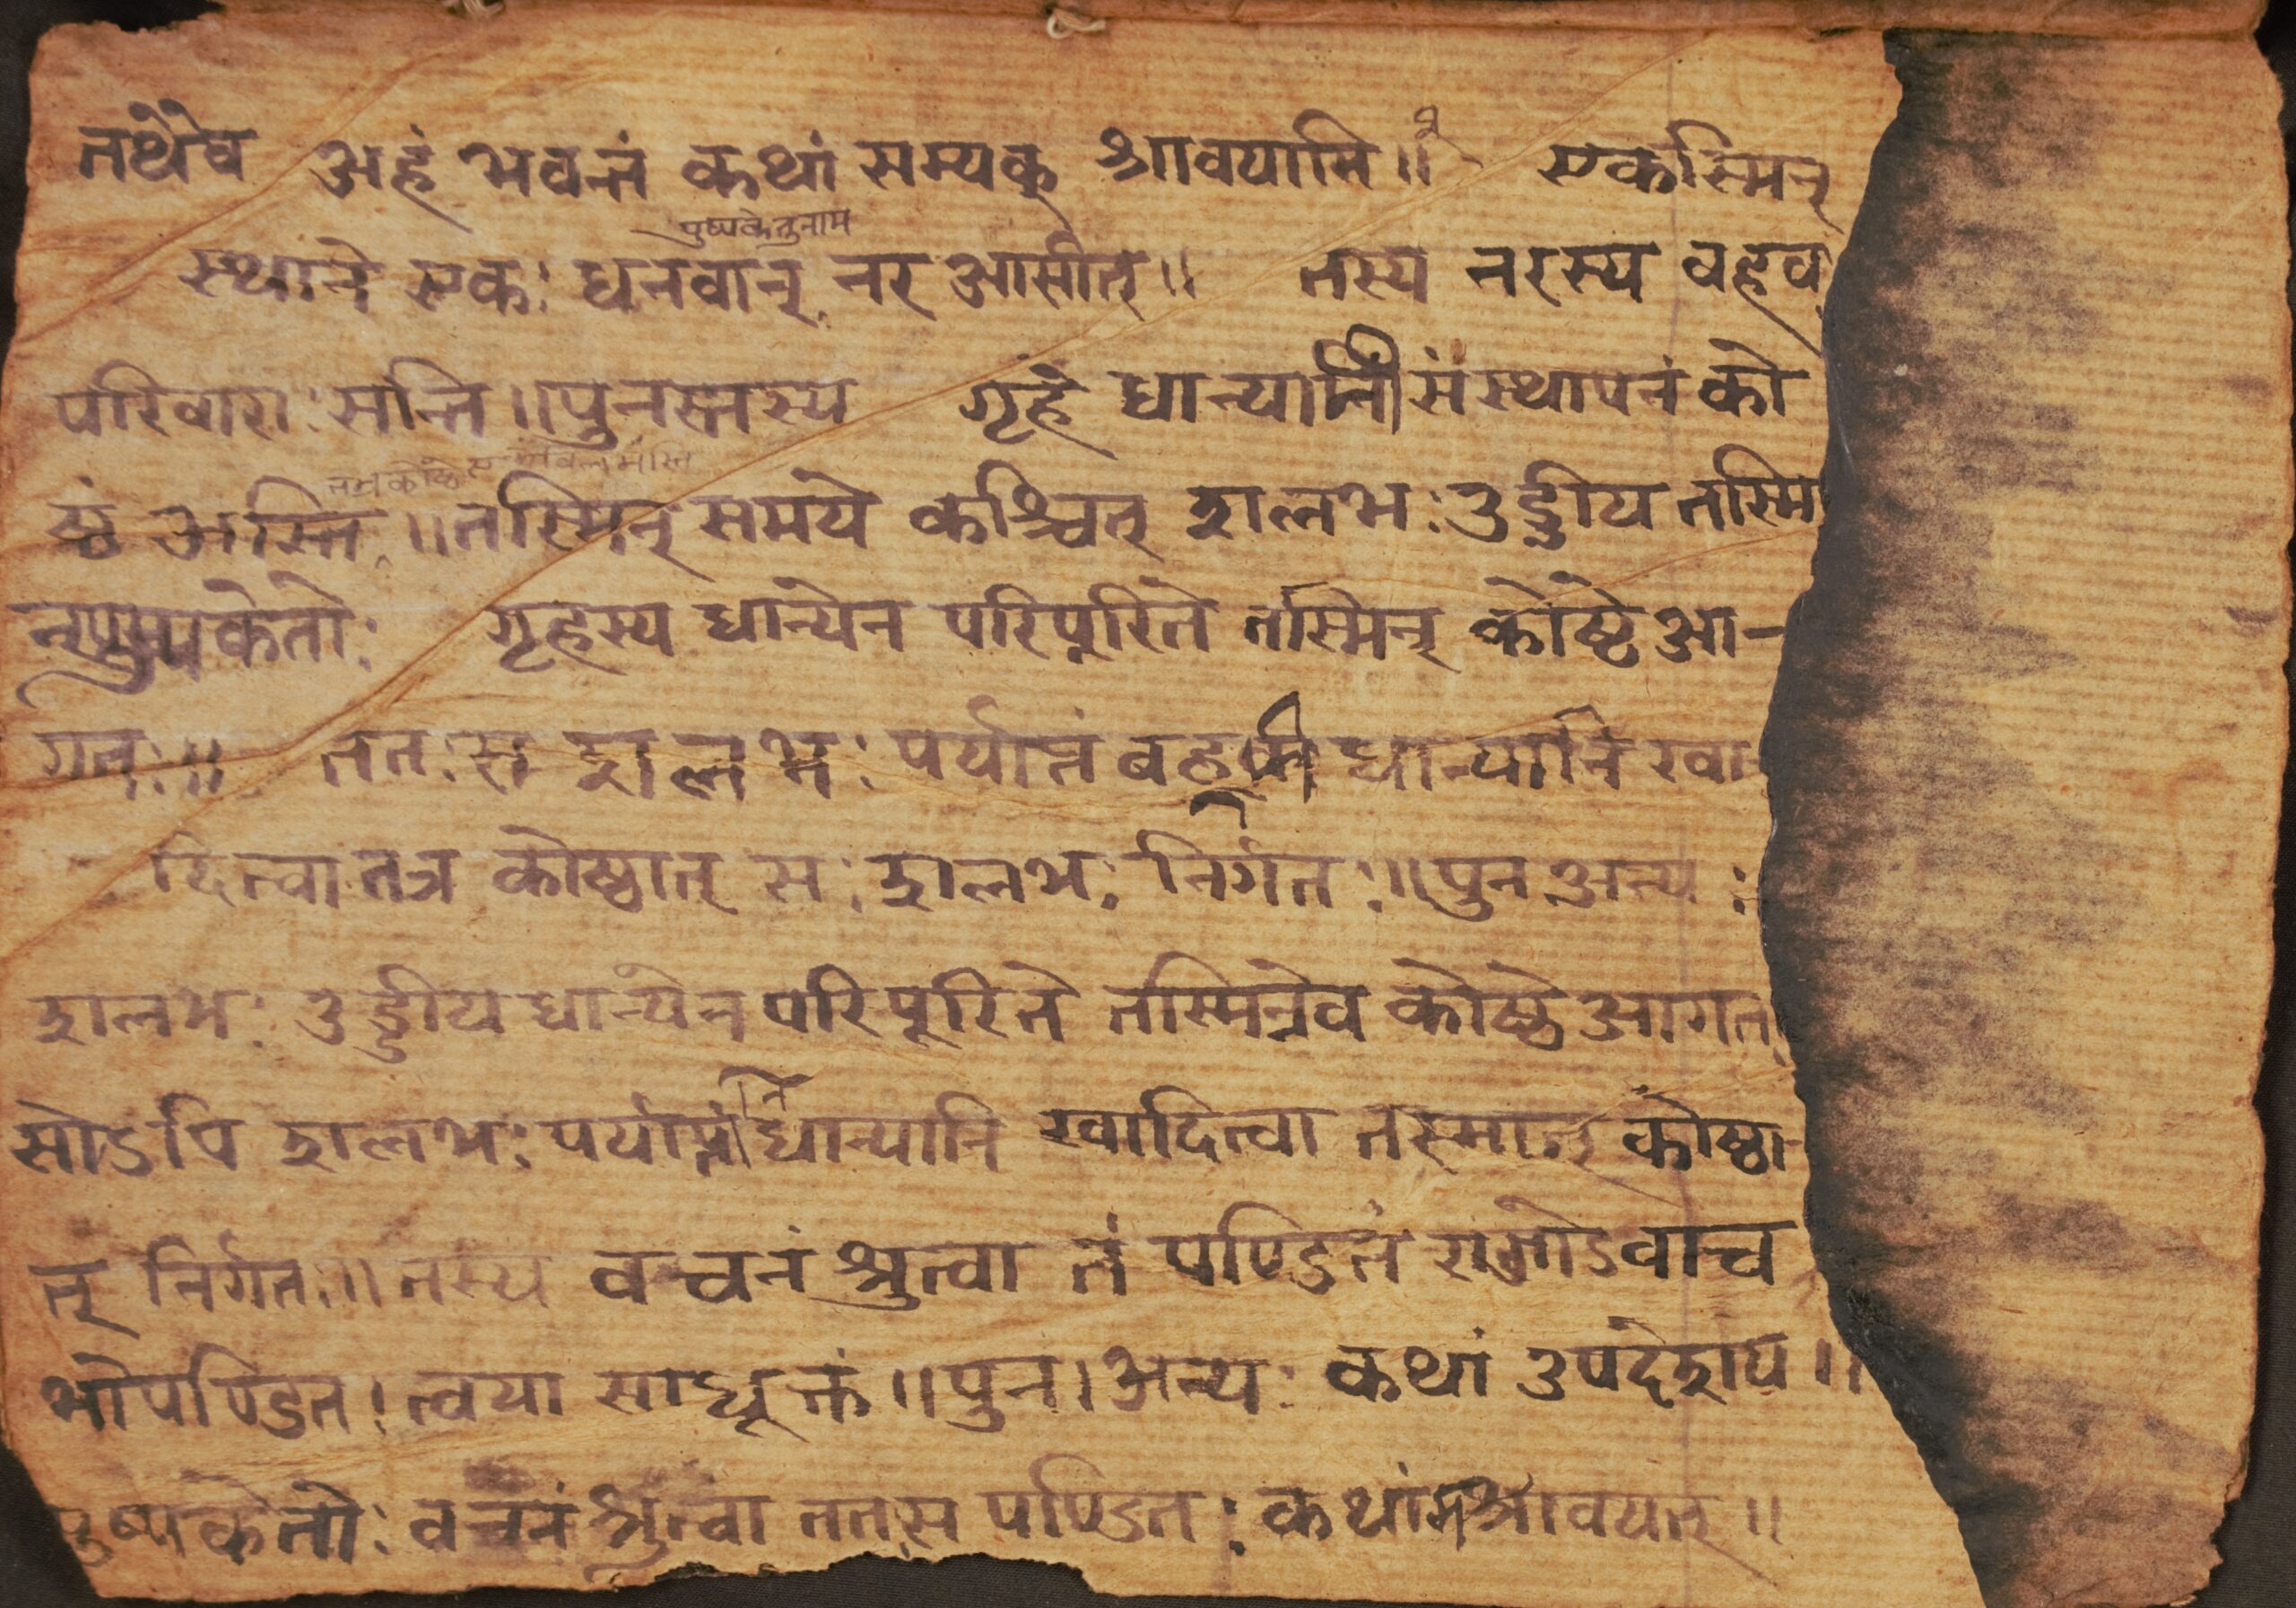 तथैव अहं भवन्तं कथां सम्यक् श्रावयामि॥ एकस्मिन्
पुष्पकेतुनाम
स्थाने एकः धनवान् नर आसीत्॥ तस्य नरस्य वहव
परिवाराः सन्ति॥पुनस्तस्य गृहं धान्यानी संस्थापनं को
ष्ठं अस्ति॥तस्मिन् समये कश्चित् शलभः उड्डीय तस्मि
न्पुष्पकेतोः गृहस्य धान्येन परिपूरिते तस्मिन् कोष्ठे आ-
गतः॥ ततः स शलभः पर्याप्तं धान्यानि खा
दित्वा तत्र कोष्ठात् सः शलभः निर्गतः॥पुन अन्यः
शलभः उड्डीय धान्येन परिपूरिते तस्मिन्नेव कोष्ठे आगत
सोऽपि शलभः पर्याप्तं धान्यानि खादित्वा तस्मात् कोष्ठा
त् निर्गतः॥तस्य वचनं श्रुत्वा तं पण्डितं
भो पण्डित। त्वया साधूक्तं॥पुन। अन्यः कथां उपदेशय॥
पुष्पकेतोः वचनं श्रुत्वा ततः स पण्डितः कथांमश्रावयत्॥